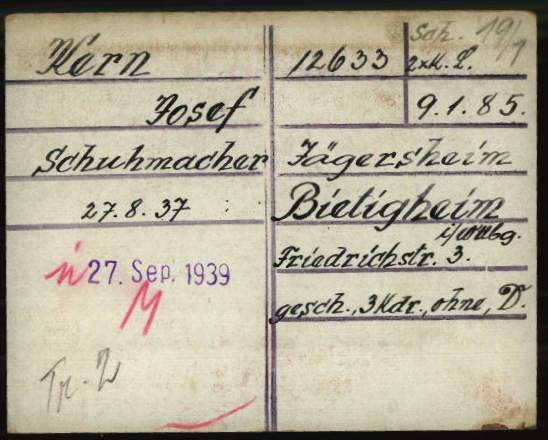 Kern
Josef
Schuhmacher
27. 8. 37
27. Sep. 1939
M
Tr. 2
Sch. 19/1
12633 2xK. L.
9. 1. 85.
Jägersheim
Bietigheim
i/Wttbg.
Friedrichstr. 3.
gesch., 3 Kdr., ohne, D.